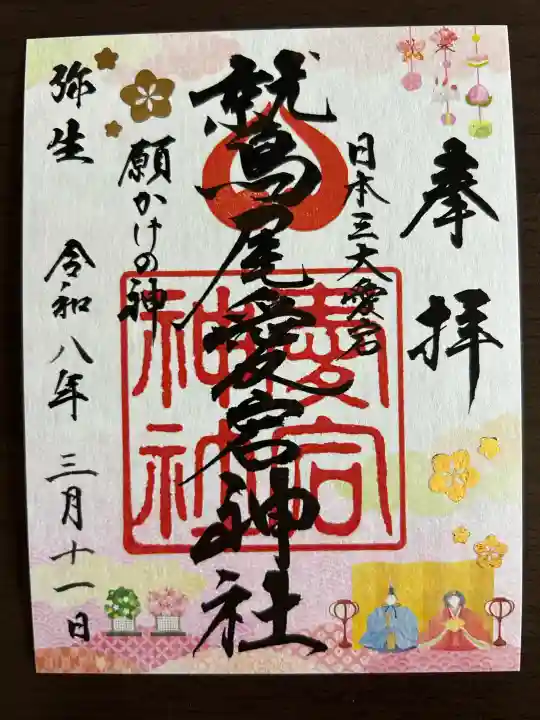 奉拝
日本三大愛宕
鷲尾愛宕神社
愛宕神社
願かけの神
弥生 令和八年 三月十一日